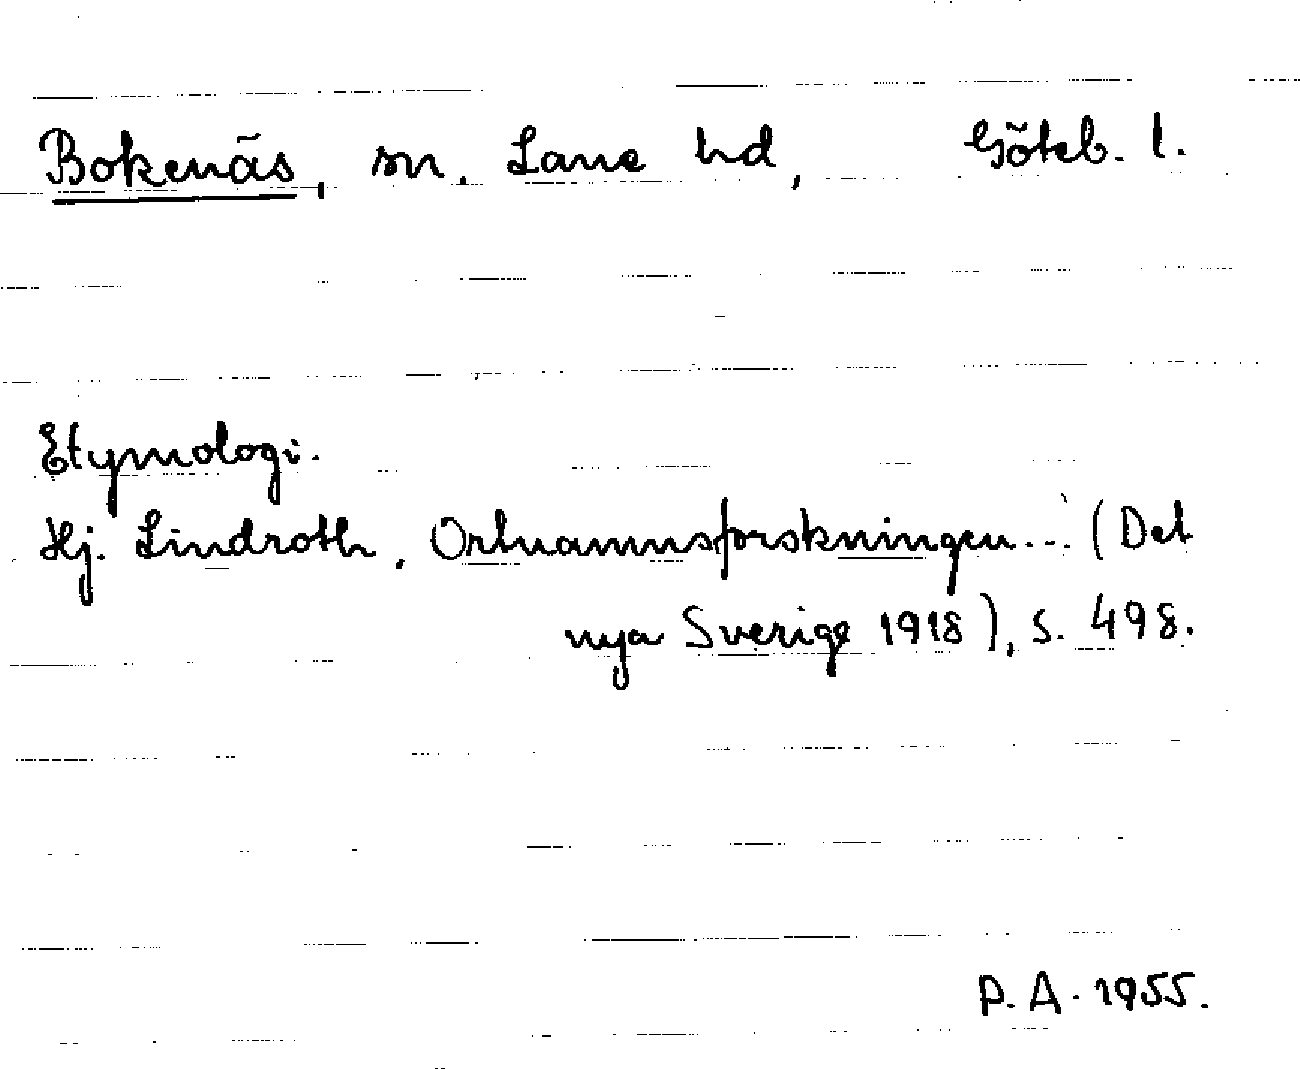 Bokenäs, sn. Lane hd, Göteb. l.
Etymologi.
Hj. Lindroth, Ortnamnsforskningen... (Det
nya Sverige 1918), s. 498.
P. A. 1955.